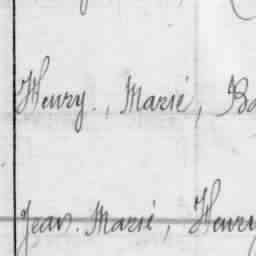 Henry., Marié, Bo
Jean. Marié, Henry